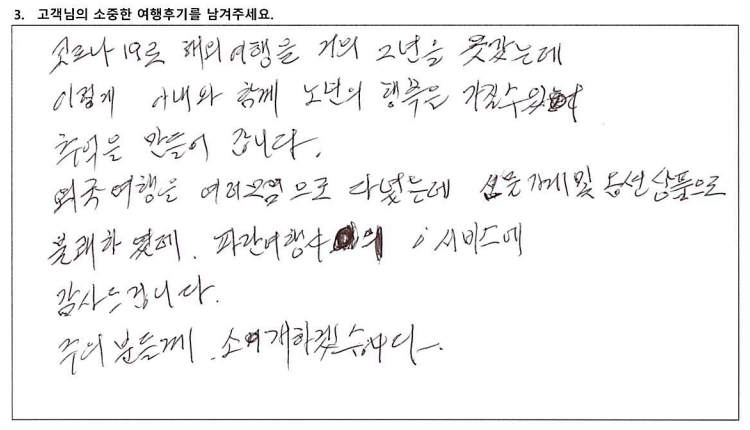 3. 고객님의 소중한 여행후기를 남겨주세요.
코로나 19로 해외여행을 거의 2년을 못갔는데
이렇게 아내와 함께 노년의 행복을 가질수있
추억을 만들어 갑니다.
외국여행을 여러모임으로 다녔는데 및 상품으로
불쾌하였데. 파란여행사의 서비스에
감사드립니다.
주위분들께. 소개하겠습니다.